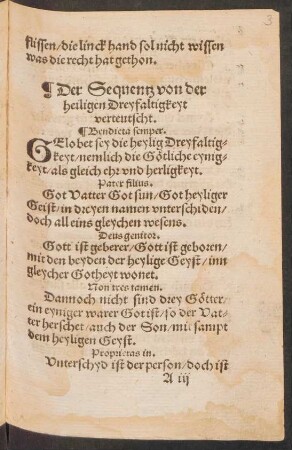 3
flissen/die linck hand sol nicht wissen
was die recht hat gethon.
¶Der Sequentz von der
heiligen Dreyfaltigkeyt
verteutscht.
¶Bendicta semper.
GElobet sey die heylig Dreyfaltig-
keyt/nemlich die Götliche eynig-
keyt/als gleich ehr vnd herligkeyt.
Pater filius.
Got Vatter Got sun/Got heyliger
Geist/in dreyen namen vnterschiden/
doch all eins gleychen wesens.
Deus genitor.
Gott ist geberer/Gott ist geboren/
mit den beyden der heylige Geyst/inn
gleycher Gotheyt wonet.
Non tres tamen.
Dannoch nicht sind drey Götter/
ein eyniger warer Got ist/so der Vat-
ter herschet/auch der Son/mit sampt
dem heyligen Geyst.
Proprietas in.
Vnterschyd ist der person/doch ist
A iij